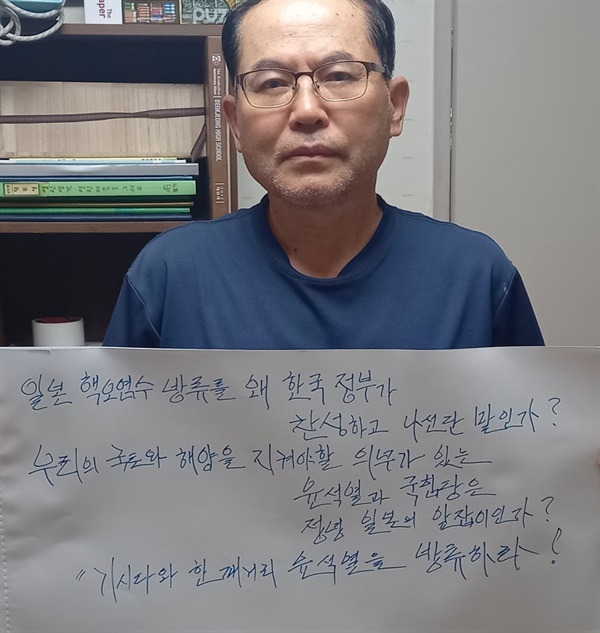 The
Paper
DEOKJEONG HIGH SCHOOL
일본 핵오염수 방류를 왜 한국 정부가
찬성하고 나선단 말인가?
우리의 국토와 해양을 지켜야할 의무가 있는
윤석열과 국힘당은
정녕 일본의 앞잡이인가?
"기시다와 한 패거리 윤석열을 방류하라!